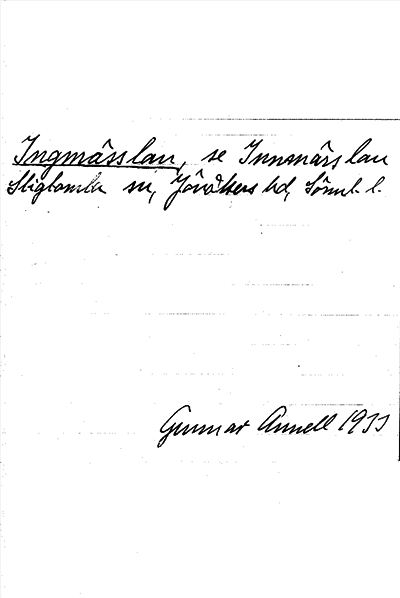 Ingmässlan, se Innmärslan
Stigtomta sn, Jönåkers hd, Söml. l.
Gunnar Annell 1933